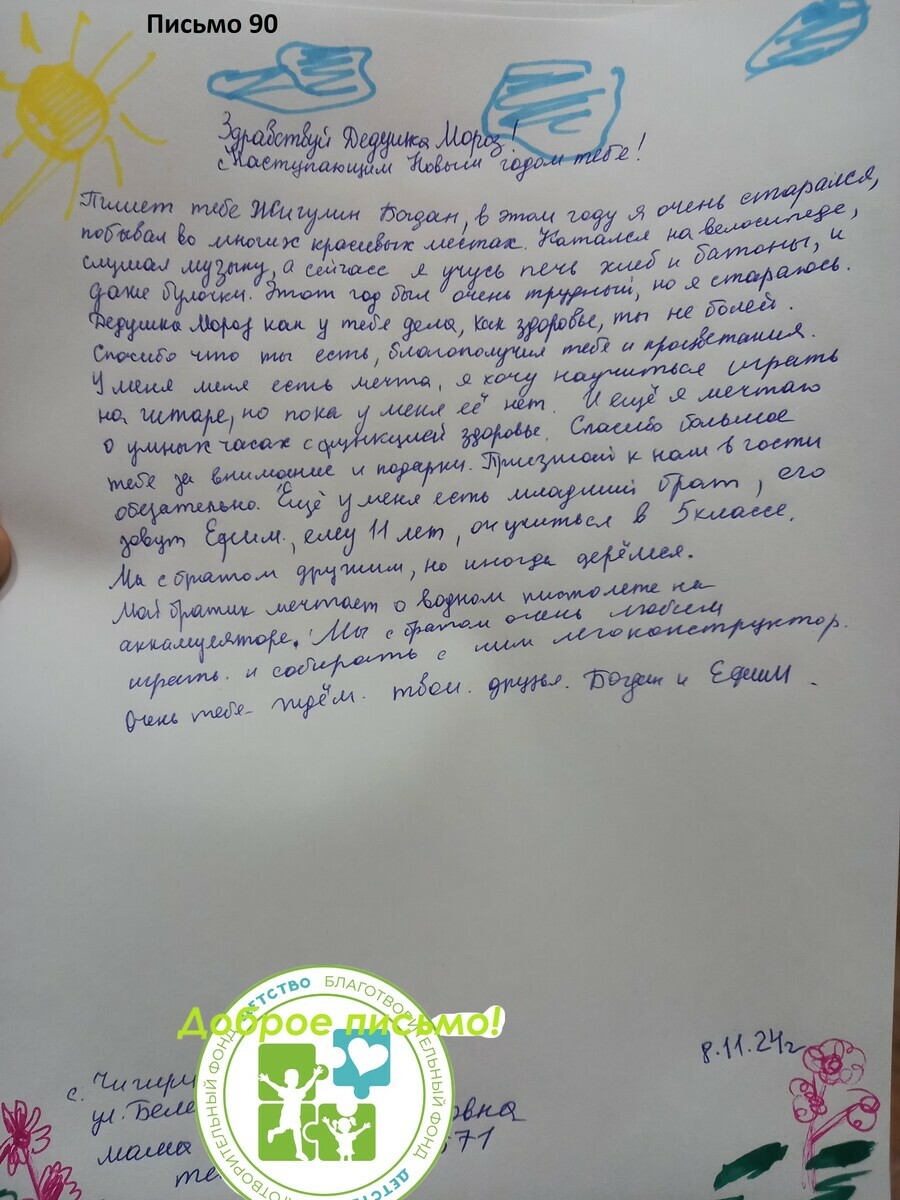 Письмо 90
Здравствуй Дедушка Мороз!
с Наступающим Новым годом тебе!
Пишет тебе Жигулин Богдан, в этом году я очень старался,
побывал во многих красивых местах. Катался на велосипеде,
слушал музыку, а сейчасс я учусь печь хлеб и батоны, и
даже булочки. Этот год был очень трудный, но я стараюсь.
Дедушка Мороз как у тебя дела, как здоровье, ты не болей.
Спосибо что ты есть, благополучия тебе и процветания.
У меня меня есть мечта, я хочу научиться играть
на гитаре, но пока у меня её нет. И ещё я мечтаю
о умных часах с функцией здоровье. Спасибо большое
тебе за внимание и подарки. Приезжай к нам в гости
обезательно. Ещё у меня есть младший брат, его
зовут Ефим, ему 11 лет, он учиться в 5 классе.
Мы с братом дружим, но иногда дерёмся.
Мой братик мечтает о водном пистолете на
аккамуляторе. Мы с братом очень любим
играть и собирать с ним легоконструктор.
Очень тебе ждём. твои друзья. Богдан и Ефим.
8.11.24г
с. Чигири
ул. Беле овна
мама 571
те
Доброе письмо!
ДЕТСТВО БЛАГОТВОРИТЕЛЬНЫЙ ФОНД